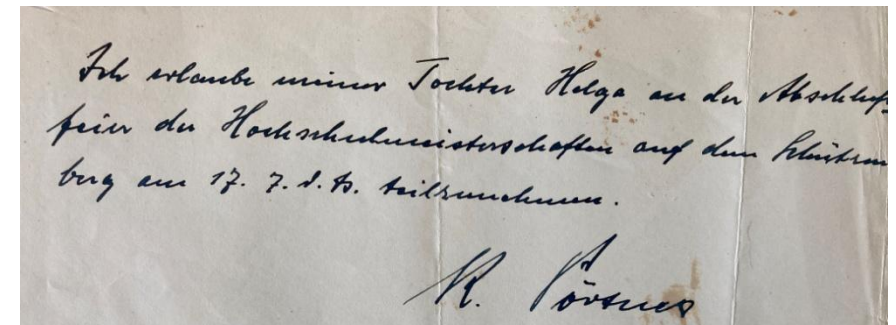 Ich erlaube meiner Tochter Helga an der Abschluß-
feier der Hochschulmeisterschaften auf dem Schützen
berg am 17. 7. d. Js. teilzunehmen.
K. Pörtner